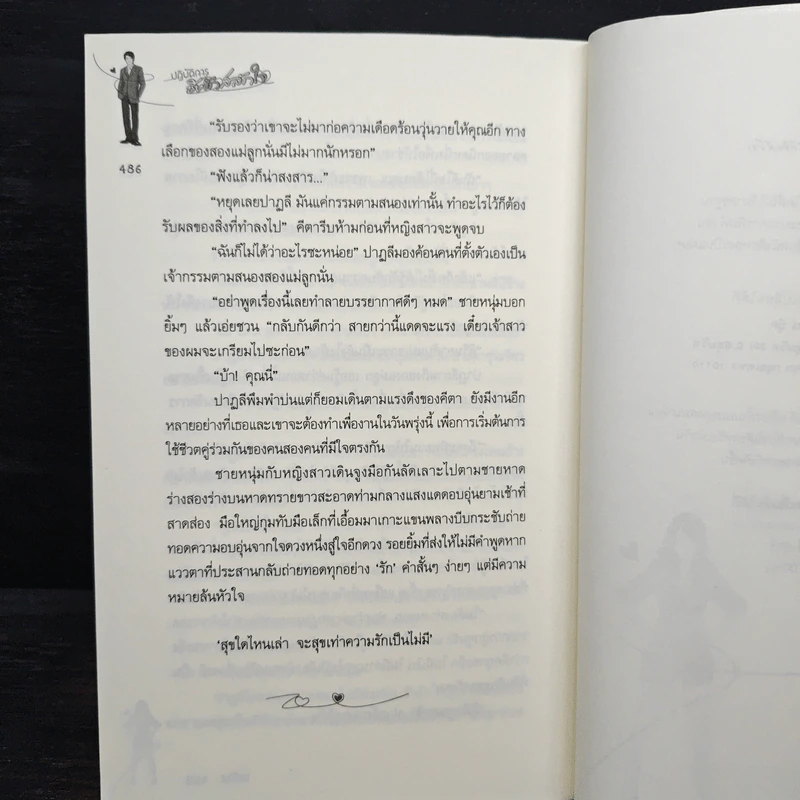 ปฏิบัติการ
486
“รับรองว่าเขาจะไม่มาก่อความเดือดร้อนวุ่นวายให้คุณอีก ทาง
เลือกของสองแม่ลูกนั่นมีไม่มากนักหรอก”
“ฟังแล้วก็น่าสงสาร...”
“หยุดเลยปาฏลี มันแค่กรรมตามสนองเท่านั้น ทำอะไรไว้ก็ต้อง
รับผลของสิ่งที่ทำลงไป” คีตารีบห้ามก่อนที่หญิงสาวจะพูดจบ
“ฉันก็ไม่ได้ว่าอะไรซะหน่อย” ปาฏลีมองค้อนคนที่ตั้งตัวเองเป็น
เจ้ากรรมตามสนองสองแม่ลูกนั่น
“อย่าพูดเรื่องนี้เลยทำลายบรรยากาศดีๆ หมด” ชายหนุ่มบอก
ยิ้มๆ แล้วเอ่ยชวน “กลับกันดีกว่า สายกว่านี้แดดจะแรง เดี๋ยวเจ้าสาว
ของผมจะเกรียมไปซะก่อน”
“บ้า! คุณนี่”
ปาฏลีพึมพำบ่นแต่ก็ยอมเดินตามแรงดึงของคีตา ยังมีงานอีก
หลายอย่างที่เธอและเขาจะต้องทำเพื่องานในวันพรุ่งนี้ เพื่อการเริ่มต้นการ
ใช้ชีวิตคู่ร่วมกันของคนสองคนที่มีใจตรงกัน
ชายหนุ่มกับหญิงสาวเดินจูงมือกันลัดเลาะไปตามชายหาด
ร่างสองร่างบนหาดทรายขาวสะอาดท่ามกลางแสงแดดอบอุ่นยามเช้าที่
สาดส่อง มือใหญ่กุมทับมือเล็กที่เอื้อมมาเกาะแขนพลางบีบกระชับถ่าย
ทอดความอบอุ่นจากใจดวงหนึ่งสู่ใจอีกดวง รอยยิ้มที่ส่งให้ไม่มีคำพูดหาก
แววตาที่ประสานกลับถ่ายทอดทุกอย่าง ‘รัก’ คำสั้นๆ ง่ายๆ แต่มีความ
หมายล้นหัวใจ
‘สุขใดไหนเล่า จะสุขเท่าความรักเป็นไม่มี’